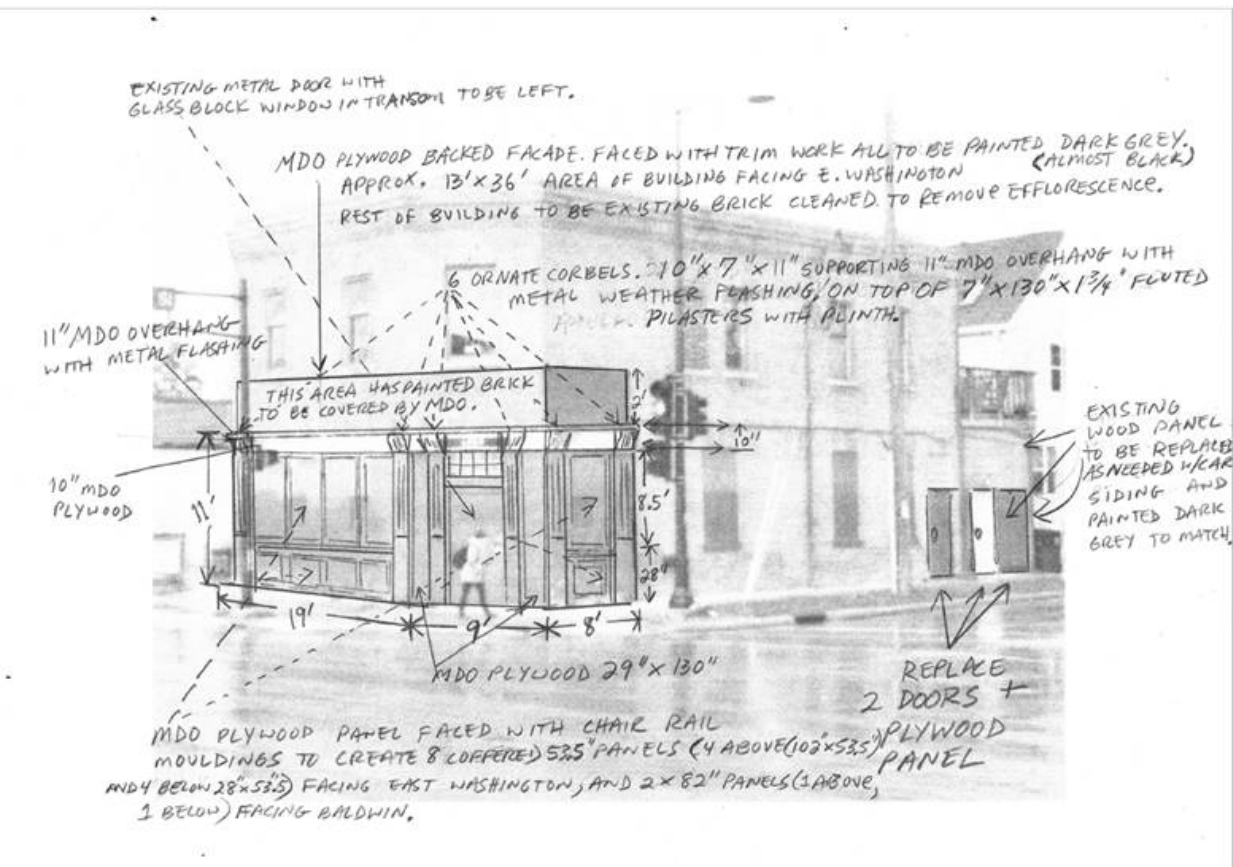 EXISTING METAL DOOR WITH
GLASS BLOCK WINDOW IN TRANSOM TO BE LEFT.
MDO PLYWOOD BACKED FACADE. FACED WITH TRIM WORK ALL TO BE PAINTED DARK GREY.
(ALMOST BLACK)
APPROX. 13'X36' AREA OF BUILDING FACING E. WASHINGTON
REST OF BUILDING TO BE EXISTING BRICK CLEANED TO REMOVE EFFLORESCENCE.
6 ORNATE CORBELS. 10"X7"X11" SUPPORTING 11" MDO OVERHANG WITH
METAL WEATHER FLASHING, ON TOP OF 7"X130"X1¾" FLUTED
PILASTERS WITH PLINTH.
11" MDO OVERHANG
WITH METAL FLASHING
THIS AREA HAS PAINTED BRICK
TO BE COVERED BY MDO.
2'
10"
10" MDO
PLYWOOD
11'
8.5'
28"
19'
9'
8'
EXISTING
WOOD PANEL
TO BE REPLACED
AS NEEDED W/CAR
SIDING AND
PAINTED DARK
GREY TO MATCH.
MDO PLYWOOD 29"X130"
REPLACE
2 DOORS +
PLYWOOD
PANEL
MDO PLYWOOD PANEL FACED WITH CHAIR RAIL
MOULDINGS TO CREATE 8 COFFERED 53.5" PANELS (4 ABOVE (102"X53.5")
AND 4 BELOW 28"X53.5) FACING EAST WASHINGTON, AND 2 X 82" PANELS (1 ABOVE,
1 BELOW) FACING BALDWIN.